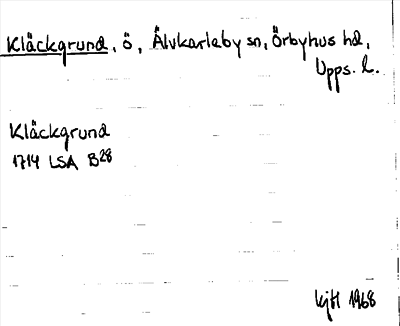 Kläckgrund, ö, Älvkarleby sn, Örbyhus hd,
Upps. l.
Kläckgrund
1714 LSA B28
1968